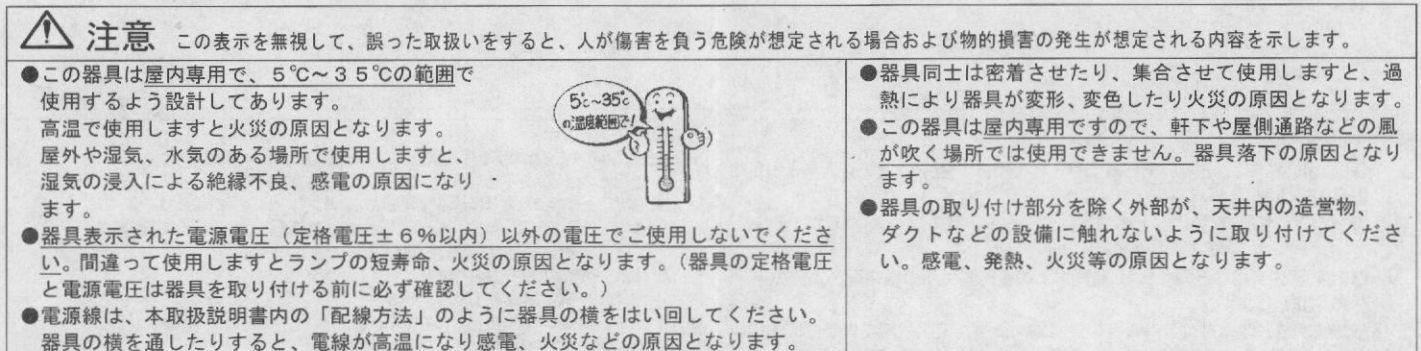 注意 この表示を無視して、誤った取扱いをすると、人が傷害を負う危険が想定される場合および物的損害の発生が想定される内容を示します。
●この器具は屋内専用で、５℃～３５℃の範囲で
使用するよう設計してあります。
高温で使用しますと火災の原因となります。
屋外や湿気、水気のある場所で使用しますと、
湿気の浸入による絶縁不良、感電の原因になり
ます。
5℃~35℃
の温度範囲で!
●器具表示された電源電圧（定格電圧±６％以内）以外の電圧でご使用しないでくださ
い。間違って使用しますとランプの短寿命、火災の原因となります。（器具の定格電圧
と電源電圧は器具を取り付ける前に必ず確認してください。）
●電源線は、本取扱説明書内の「配線方法」のように器具の横をはい回してください。
器具の横を通したりすると、電線が高温になり感電、火災などの原因となります。
●器具同士は密着させたり、集合させて使用しますと、過
熱により器具が変形、変色したり火災の原因となります。
●この器具は屋内専用ですので、軒下や屋側通路などの風
が吹く場所では使用できません。器具落下の原因となり
ます。
●器具の取り付け部分を除く外部が、天井内の造営物、
ダクトなどの設備に触れないように取り付けてくださ
い。感電、発熱、火災等の原因となります。